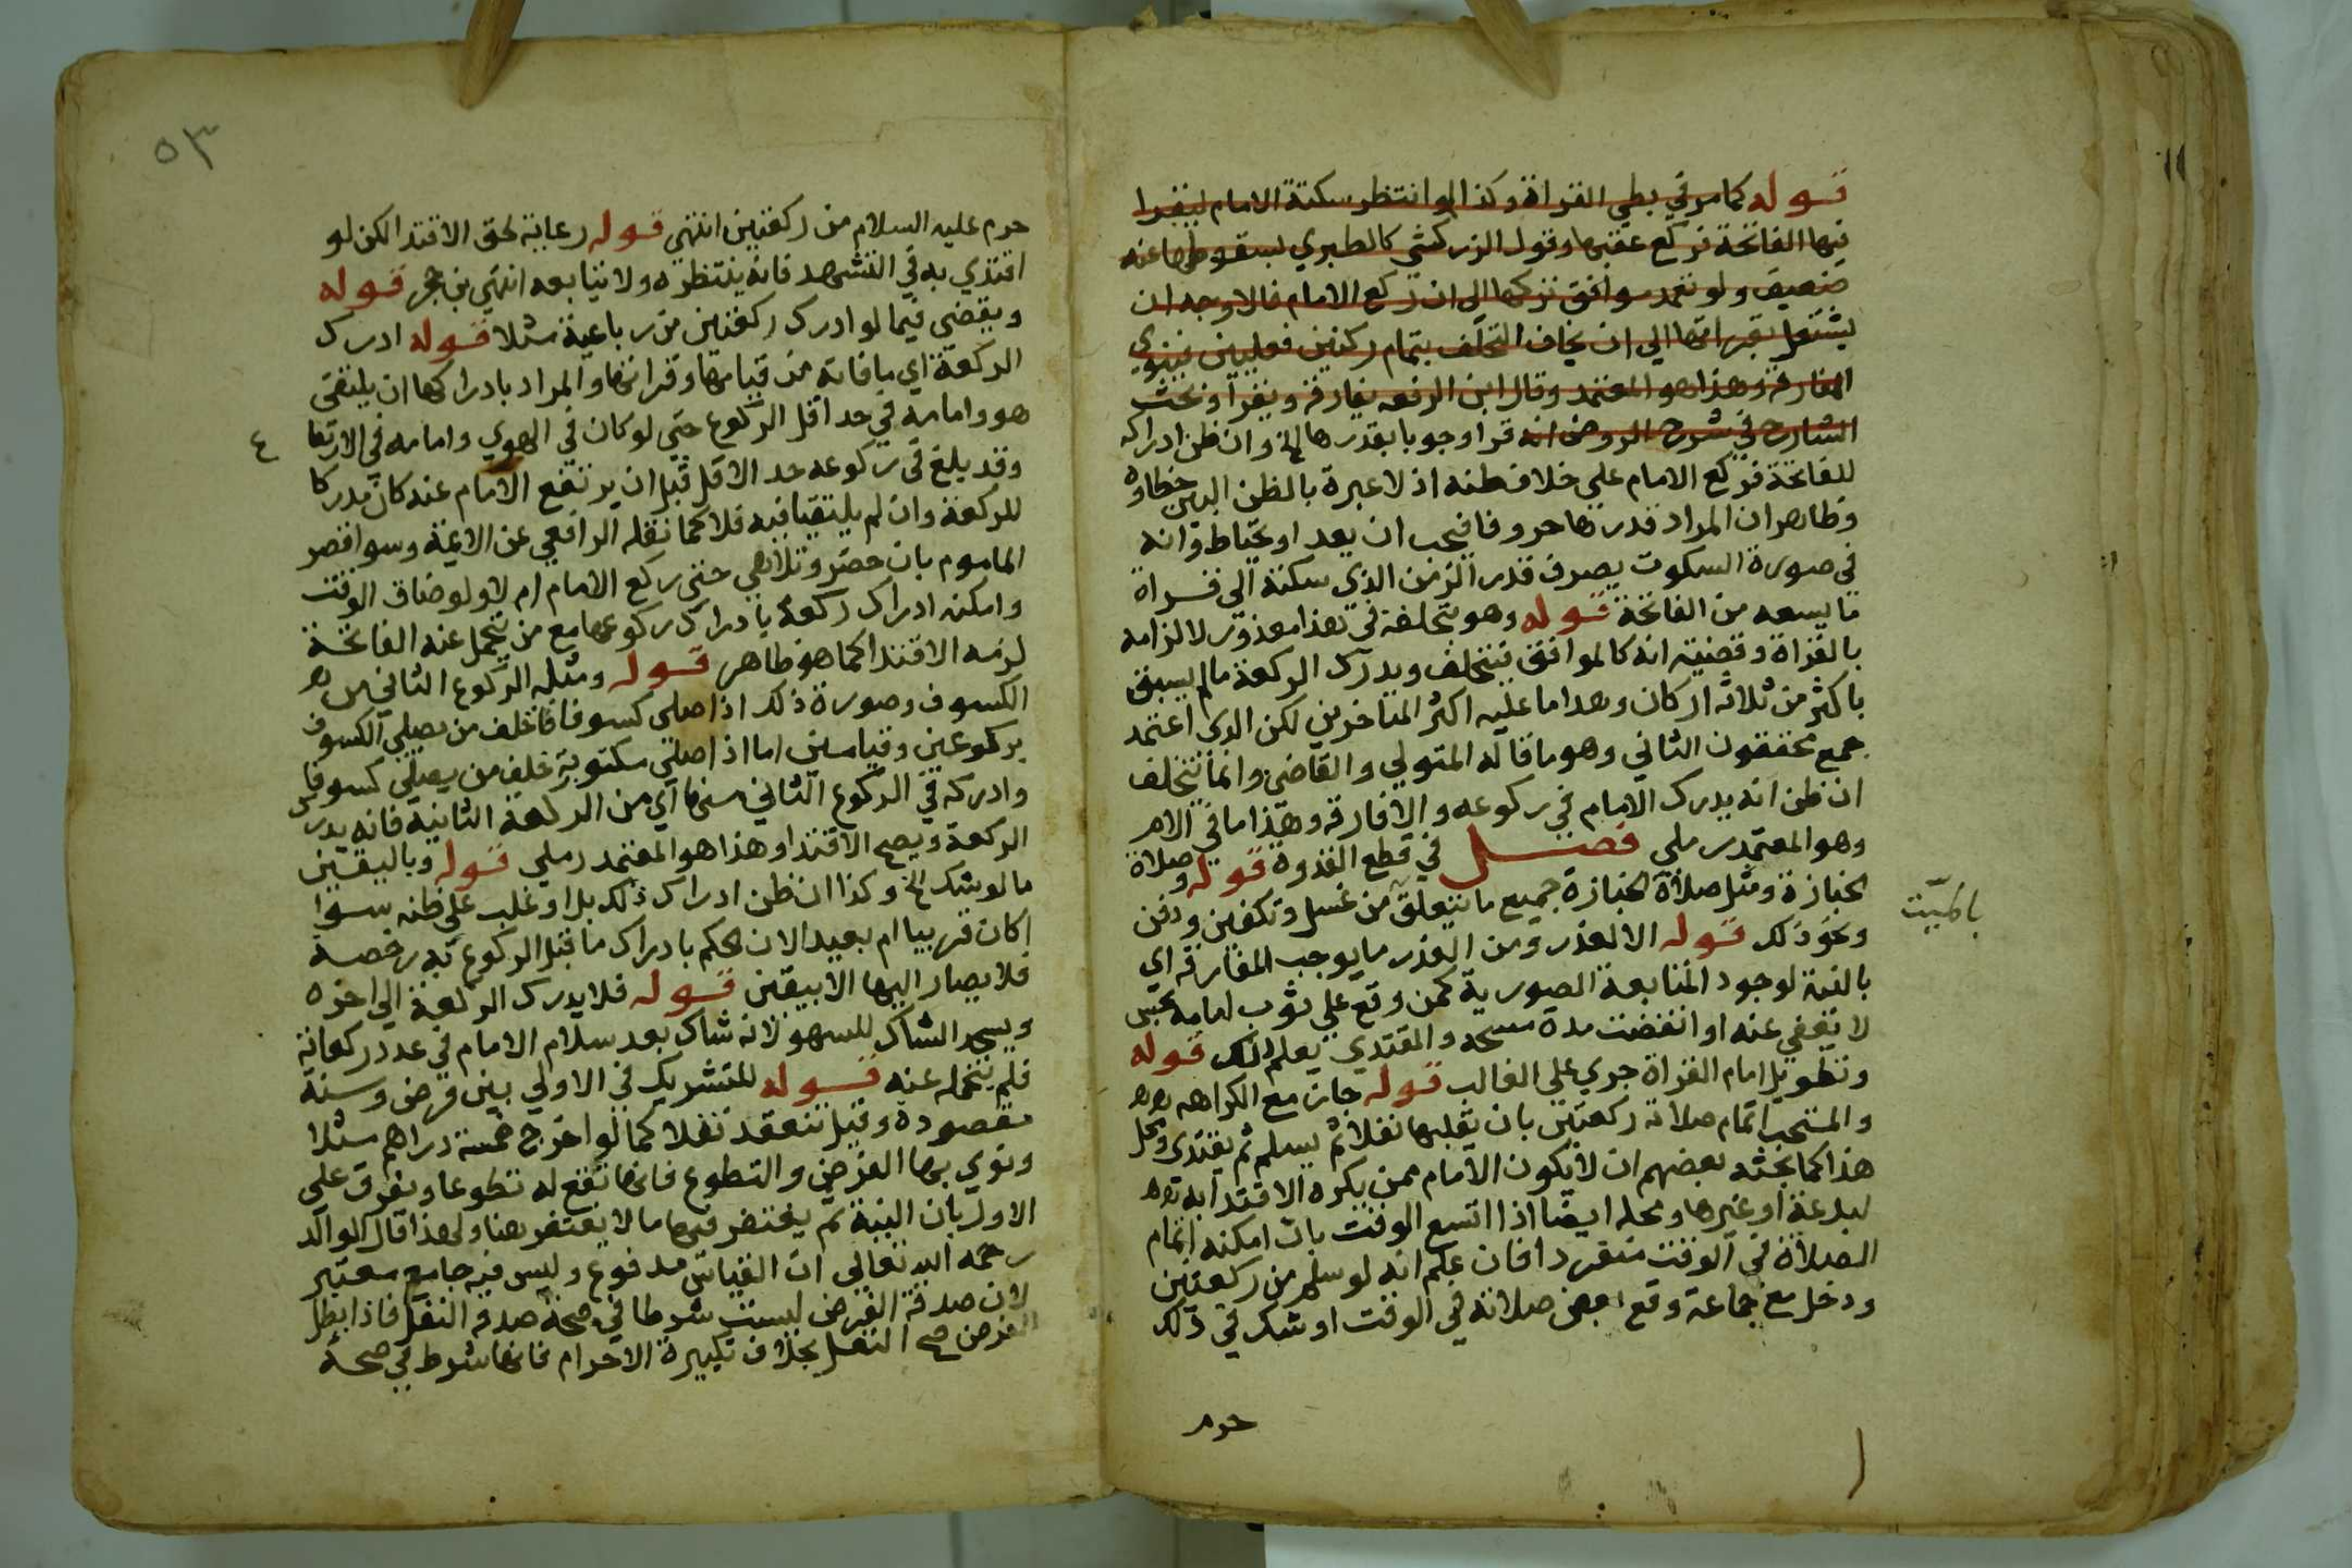 قوله كما مر في بطي القراة وكذا لو انتظر سكتة الامام ليقرا
فيها الفاتحة فركع عقبها وقول الزركشي كالطبري لسقوطها عنه
ضعيف ولو تعمد موافق تركها الى ان ركع الامام فالاوجه ان
يشتغل بقراتها الي ان يخاف التخلف بتمام ركنين فعليين فينوي
المفارقة وهذا هو المعتمد وقال ابن الرفعه يفارقه ويقرا وبحث
الشارح في شرح الروض انه قرا وجوبا بقدرها الخ وان ظن ادراكه
للفاتحة فركع الامام علي خلاف ظنه اذ لا عبرة بالظن البين خطاوه
وظاهر ان المراد قدرها حروفا فيجب ان يعد او يحتاط وانه
في صورة السكوت يصرف قدر الزمن الذي سكته الى قراة
ما يسعه من الفاتحة قوله وهو بتخلفه في هذا معذور لالزامه
بالقراة وقضيته انه كالموافق فيتخلف ويدرك الركعة ما لم يسبق
باكثر من ثلاثة اركان وهذا ما عليه اكثر المتاخرين لكن الذي اعتمد
جمع محققون الثاني وهو ما قاله المتولي والقاضي وانما يتخلف
ان ظن انه يدرك الامام في ركوعه والا فارقه وهذا ما في الام
وهو المعتمد رملي فصل في قطع القدوة قوله وصلاة
الجنازة ومثل صلاة الجنازة جميع ما يتعلق من غسل وتكفين ودفن
بالميت
ونحو ذلك قوله الا لعذر ومن العذر ما يوجب المفارقه اي
بالنية لوجود المتابعة الصورية كمن وقع علي ثوب امامه نجس
لا يعفي عنه او انقضت مدة مسحه والمقتدي يعلم ذلك قوله
وتطويل امام القراة جري علي الغالب قوله جاز مع الكراهه
والمستحب اتمام صلاته ركعتين بان يقلبها نفلا ثم يسلم ثم يقتدي ومحل
هذا كما بحثه بعضهم ان لا يكون الامام ممن يكره الاقتدا به
لبدعة او غيرها ومحله ايضا اذا اتسع الوقت بان امكنه اتمام
الصلاة في الوقت منفردا فان علم انه لو سلم من ركعتين
ودخل مع جماعة وقع بعض صلاته في الوقت او شك في ذلك
حرم
٥٣
حرم عليه السلام من ركعتين انتهي قوله رعاية لحق الاقتدا لكن لو
اقتدي به في التشهد فانه ينتظره ولا يتابعه انتهي بن حجر قوله
ويقضي فيما لو ادرك ركعتين من رباعية مثلا قوله ادرك
الركعة اي ما فاته من قيامها وقراتها والمراد بادراكها ان يلتقي
هو وامامه في حد اقل الركوع حتي لو كان في الهوي وامامه في الارتفا
ع
وقد بلغ في ركوعه حد الاقل قبل ان يرتفع الامام عنه كان مدركا
للركعة وان لم يلتقيا فيه فلا كما نقله الرافعي عن الايمة وسوا قصر
الماموم بان حضر وتلاهي حتي ركع الامام ام لا ولو ضاق الوقت
وامكنه ادراك ركعة بادراك ركوعها مع من يتحمل عنه الفاتحة
لزمه الاقتدا كما هو ظاهر قوله ومثله الركوع الثاني من
الكسوف وصورة ذلك اذا صلى كسوفا خلف من يصلي الكسوف
بركوعين وقيامين اما اذا صلي مكتوبة خلف من يصلي كسوفا
وادركه في الركوع الثاني منها اي من الركعة الثانية فانه يدرك
الركعة ويصح الاقتدا وهذا هو المعتمد رملي قوله وباليقين
ما لو شك الخ وكذا ان ظن ادراك ذلك بل او غلب علي ظنه سوا
اكان قريبا ام بعيدا لان الحكم بادراك ما قبل الركوع به رخصة
فلا يصار اليها الا بيقين قوله فلا يدرك الركعة الي اخره
ويسجد الشاك للسهو لانه شاك بعد سلام الامام في عدد ركعاته
فلم يتحمله عنه قوله للتشريك في الاولي بين فرض وسنة
مقصودة وقيل تنعقد نفلا كما لو اخرج خمسة دراهم مثلا
ونوي بها الفرض والتطوع فانها تقع له تطوعا ويفرق علي
الاول بان النية ثم يغتفر فيها ما لا يغتفر هنا ولهذا قال الوالد
رحمه الله تعالي ان القياس مدفوع وليس فيه جامع معتبر
لان صدقة الفرض ليست شرطا في صحة صدقه النفل فاذا بطل
الفرض صح النفل بخلاف تكبيرة الاحرام فانها شرط في صحة